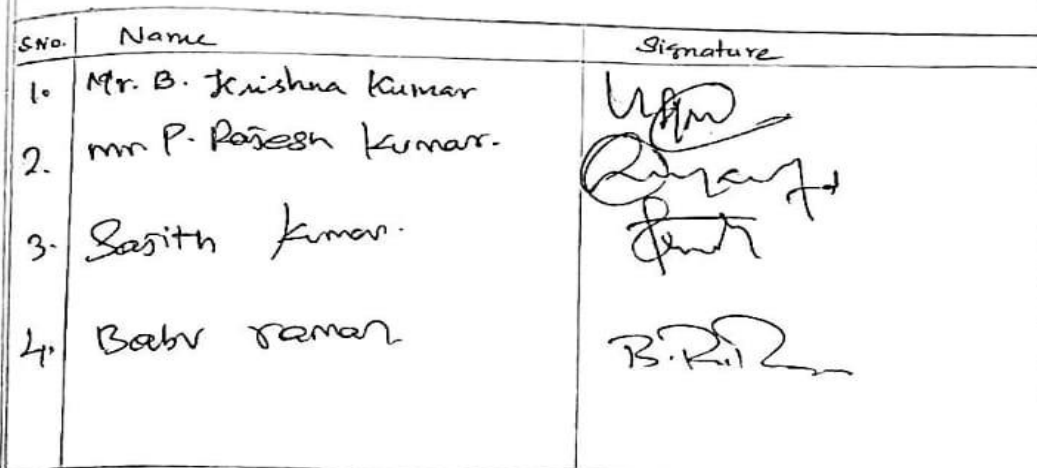 S.No. Name Signature
1. Mr. B. Krishna Kumar
2. mr P. Rajesh Kumar.
3. Sajith Kumar.
4. Babu raman B.R.